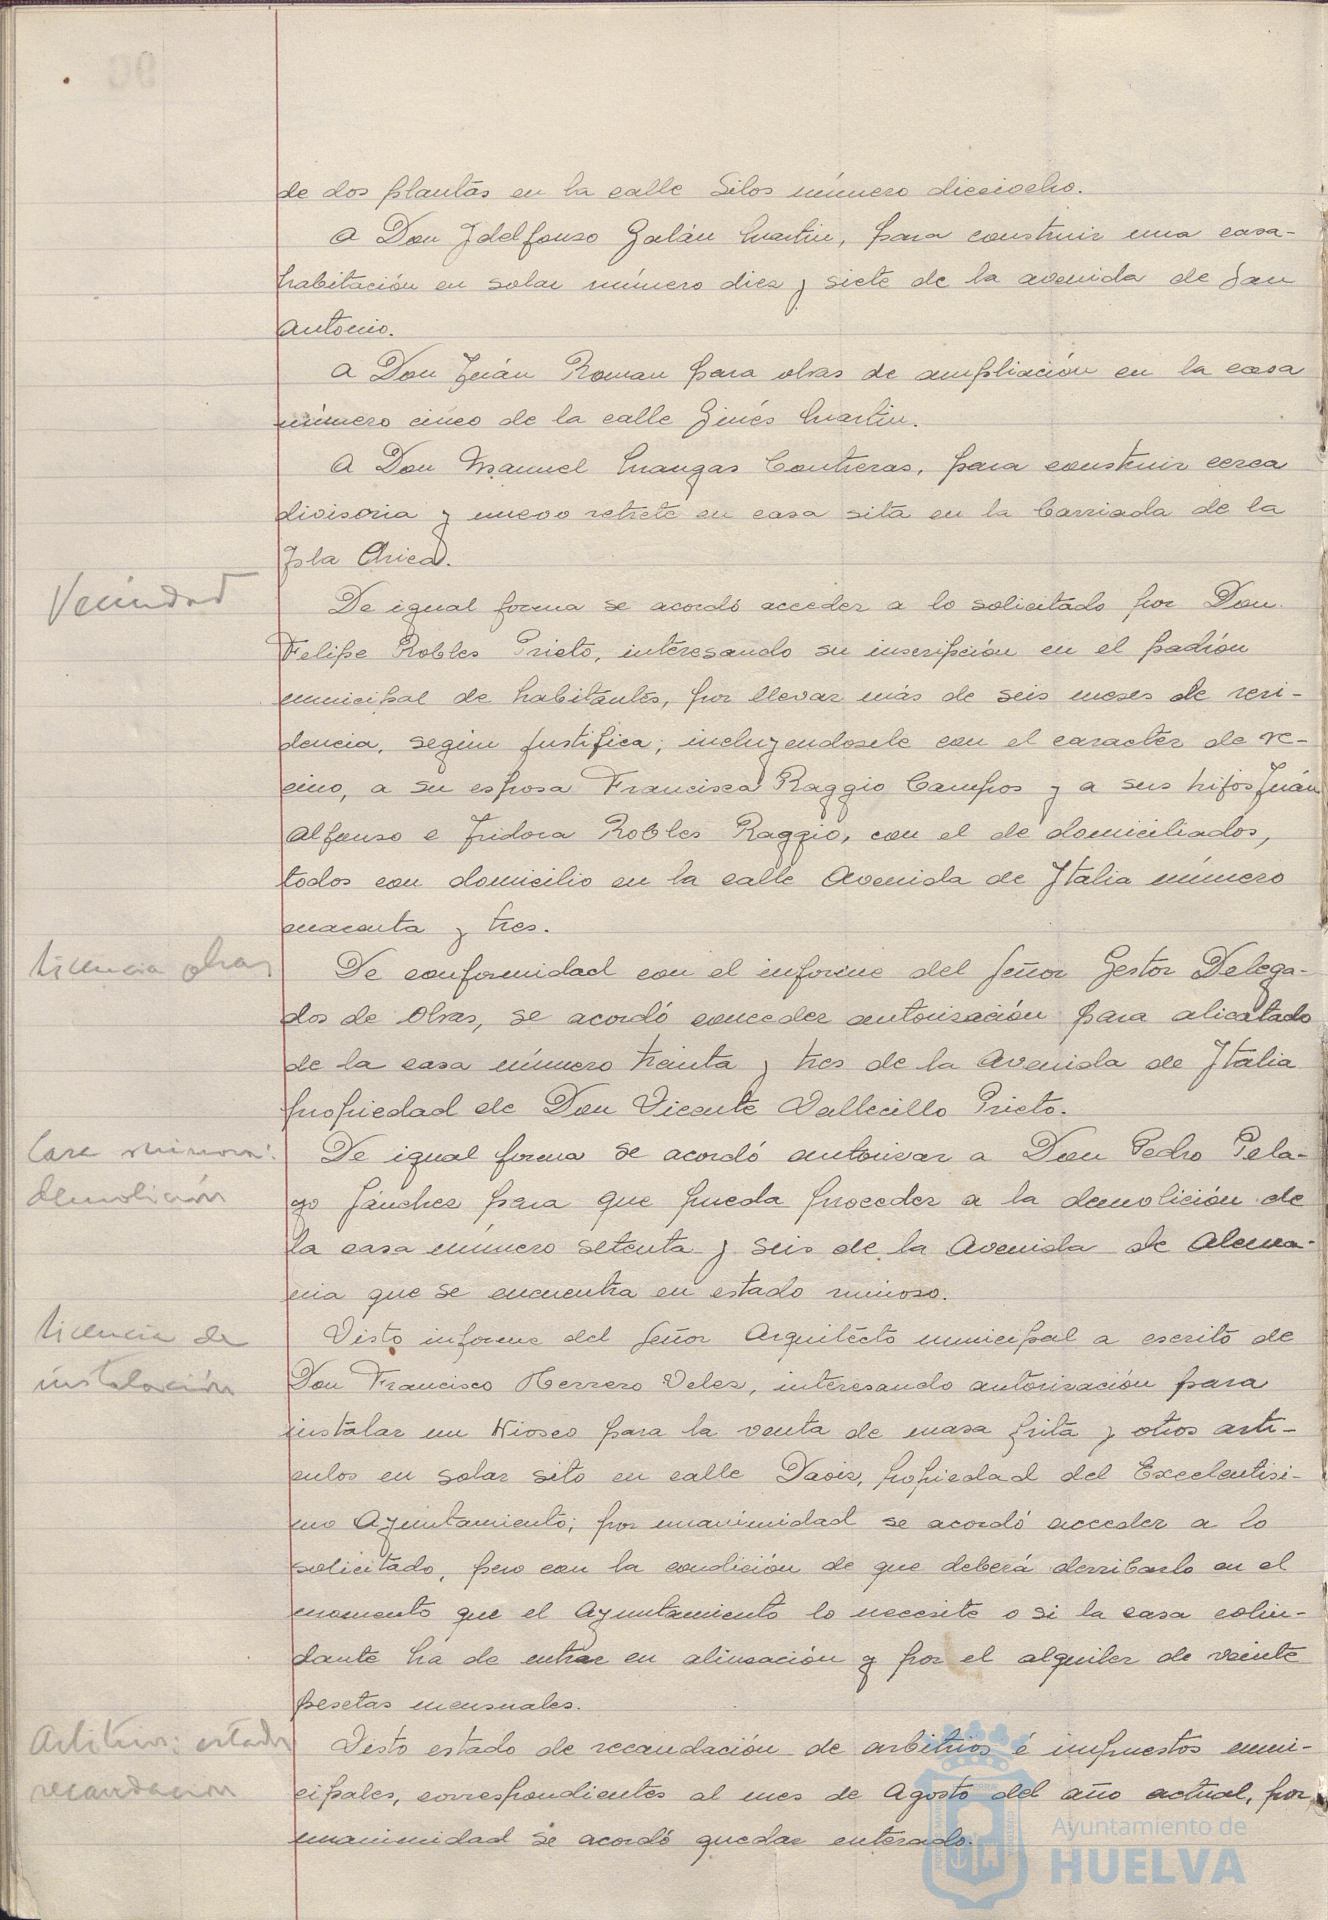 de dos plantas en la calle Silos número dieciocho.
A Don Idelfonso Galán Martin, para construir una casa-
habitación en solar número diez y siete de la avenida de San
Antonio.
A Don Juán Roman para obras de ampliación en la casa
número cinco de la calle Ginés Martin.
A Don Manuel Mangas Contreras, para construir cerca
divisoria y nuevo retrete en casa sita en la barriada de la
Isla Chica.
Vecindad
De igual forma se acordó acceder a lo solicitado por Don
Felipe Robles Prieto, interesando su inscripción en el padrón
municipal de habitantes, por llevar más de seis meses de resi-
dencia, según justifica; incluyendosele con el caracter de ve-
cino, a su esposa Francisca Raggio Campos y a sus hijos Juán
Alfonso e Isidora Robles Raggio, con el de domiciliados,
todos con domicilio en la calle Avenida de Italia número
cuarenta y tres.
Licencia obras
De conformidad con el informe del Señor Gestor Delega-
dos de Obras, se acordó conceder autorización para alicatado
de la casa número treinta y tres de la Avenida de Italia
propiedad de Don Vicente Vallecillo Prieto.
Casa ruinosa:
demolición
De igual forma se acordó autorizar a Don Pedro Pela-
yo Sánchez para que pueda proceder a la demolición de
la casa número setenta y seis de la Avenida de Alema-
nia que se encuentra en estado ruinoso.
Licencia de
instalación
Visto informe del Señor Arquitecto municipal a escrito de
Don Francisco Herrero Velez, interesando autorización para
instalar un Kiosco para la venta de masa frita y otros artí-
culos en solar sito en calle Daoiz, propiedad del Excelentisi-
mo Ayuntamiento; por unanimidad se acordó acceder a lo
solicitado, pero con la condición de que deberá derribarlo en el
momento que el Ayuntamiento lo necesite o si la casa colin-
dante ha de entrar en alineación y por el alquiler de veinte
pesetas mensuales.
Arbitrios: estado
recaudacion
Visto estado de recaudación de arbitrios é impuestos muni-
cipales, correspondientes al mes de Agosto del año actual, por
unanimidad se acordó quedar enterado.
Ayuntamiento de
HUELVA